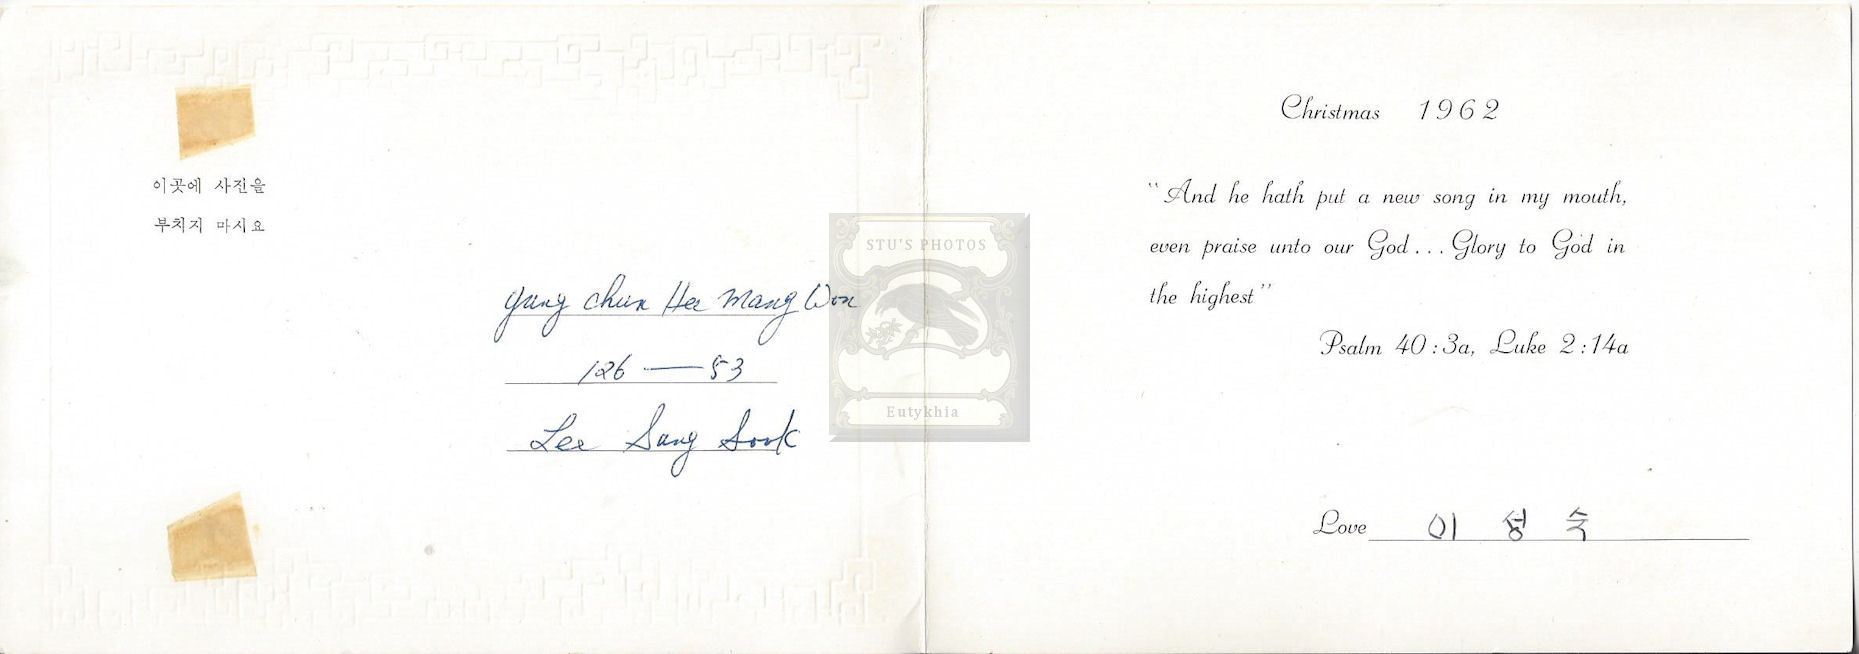 이곳에 사진을
부치지 마시요
Yung Chun Hee Mang Won
126 — 53
Lee Sung Sook
STU'S PHOTOS
Eutykhia
Christmas 1962
“And he hath put a new song in my mouth,
even praise unto our God... Glory to God in
the highest”
Psalm 40:3a, Luke 2:14a
Love 이 성 숙